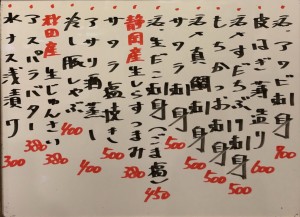 活〆アワビ刺身 700
皮はぎ薄造り 600
刺身 500
もちかつお刺身 500
活〆真鯛刺身 500
サワラ刺身 500
活〆生だこ刺身(ごま塩) 450
静岡産生しらすつまみ 380
サワラ塩焼き 500
アサリ酒蒸し 400
冷し豚しゃぶ 400
秋田産生じゅんさい 380
アスパラバター 380
水ナス浅漬け 300